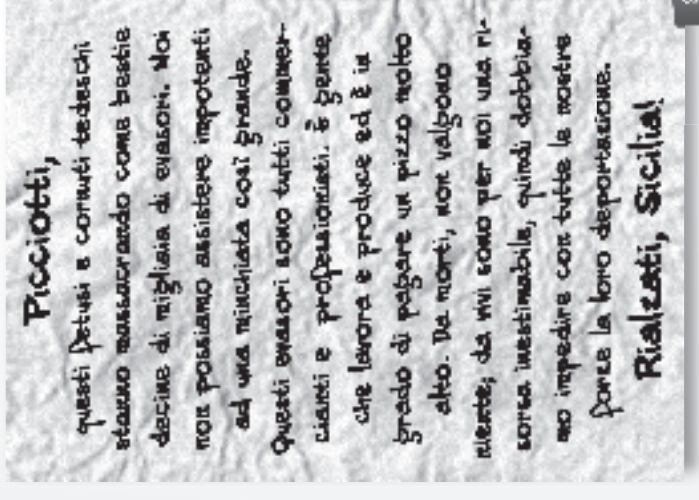 Picciotti,
questi fetusi e cornuti tedeschi
stanno massacrando come bestie
decine di migliaia di evasori. Noi
non possiamo assistere impotenti
ad una minchiata così grande.
Questi evasori sono tutti commer-
cianti e professionisti. è gente
che lavora e produce ed è in
grado di pagare un pizzo molto
alto. Da morti, non valgono
niente; da vivi sono per noi una ri-
sorsa inestimabile, quindi dobbia-
mo impedire con tutte le nostre
forze la loro deportazione.
Rialzati, Sicilia!